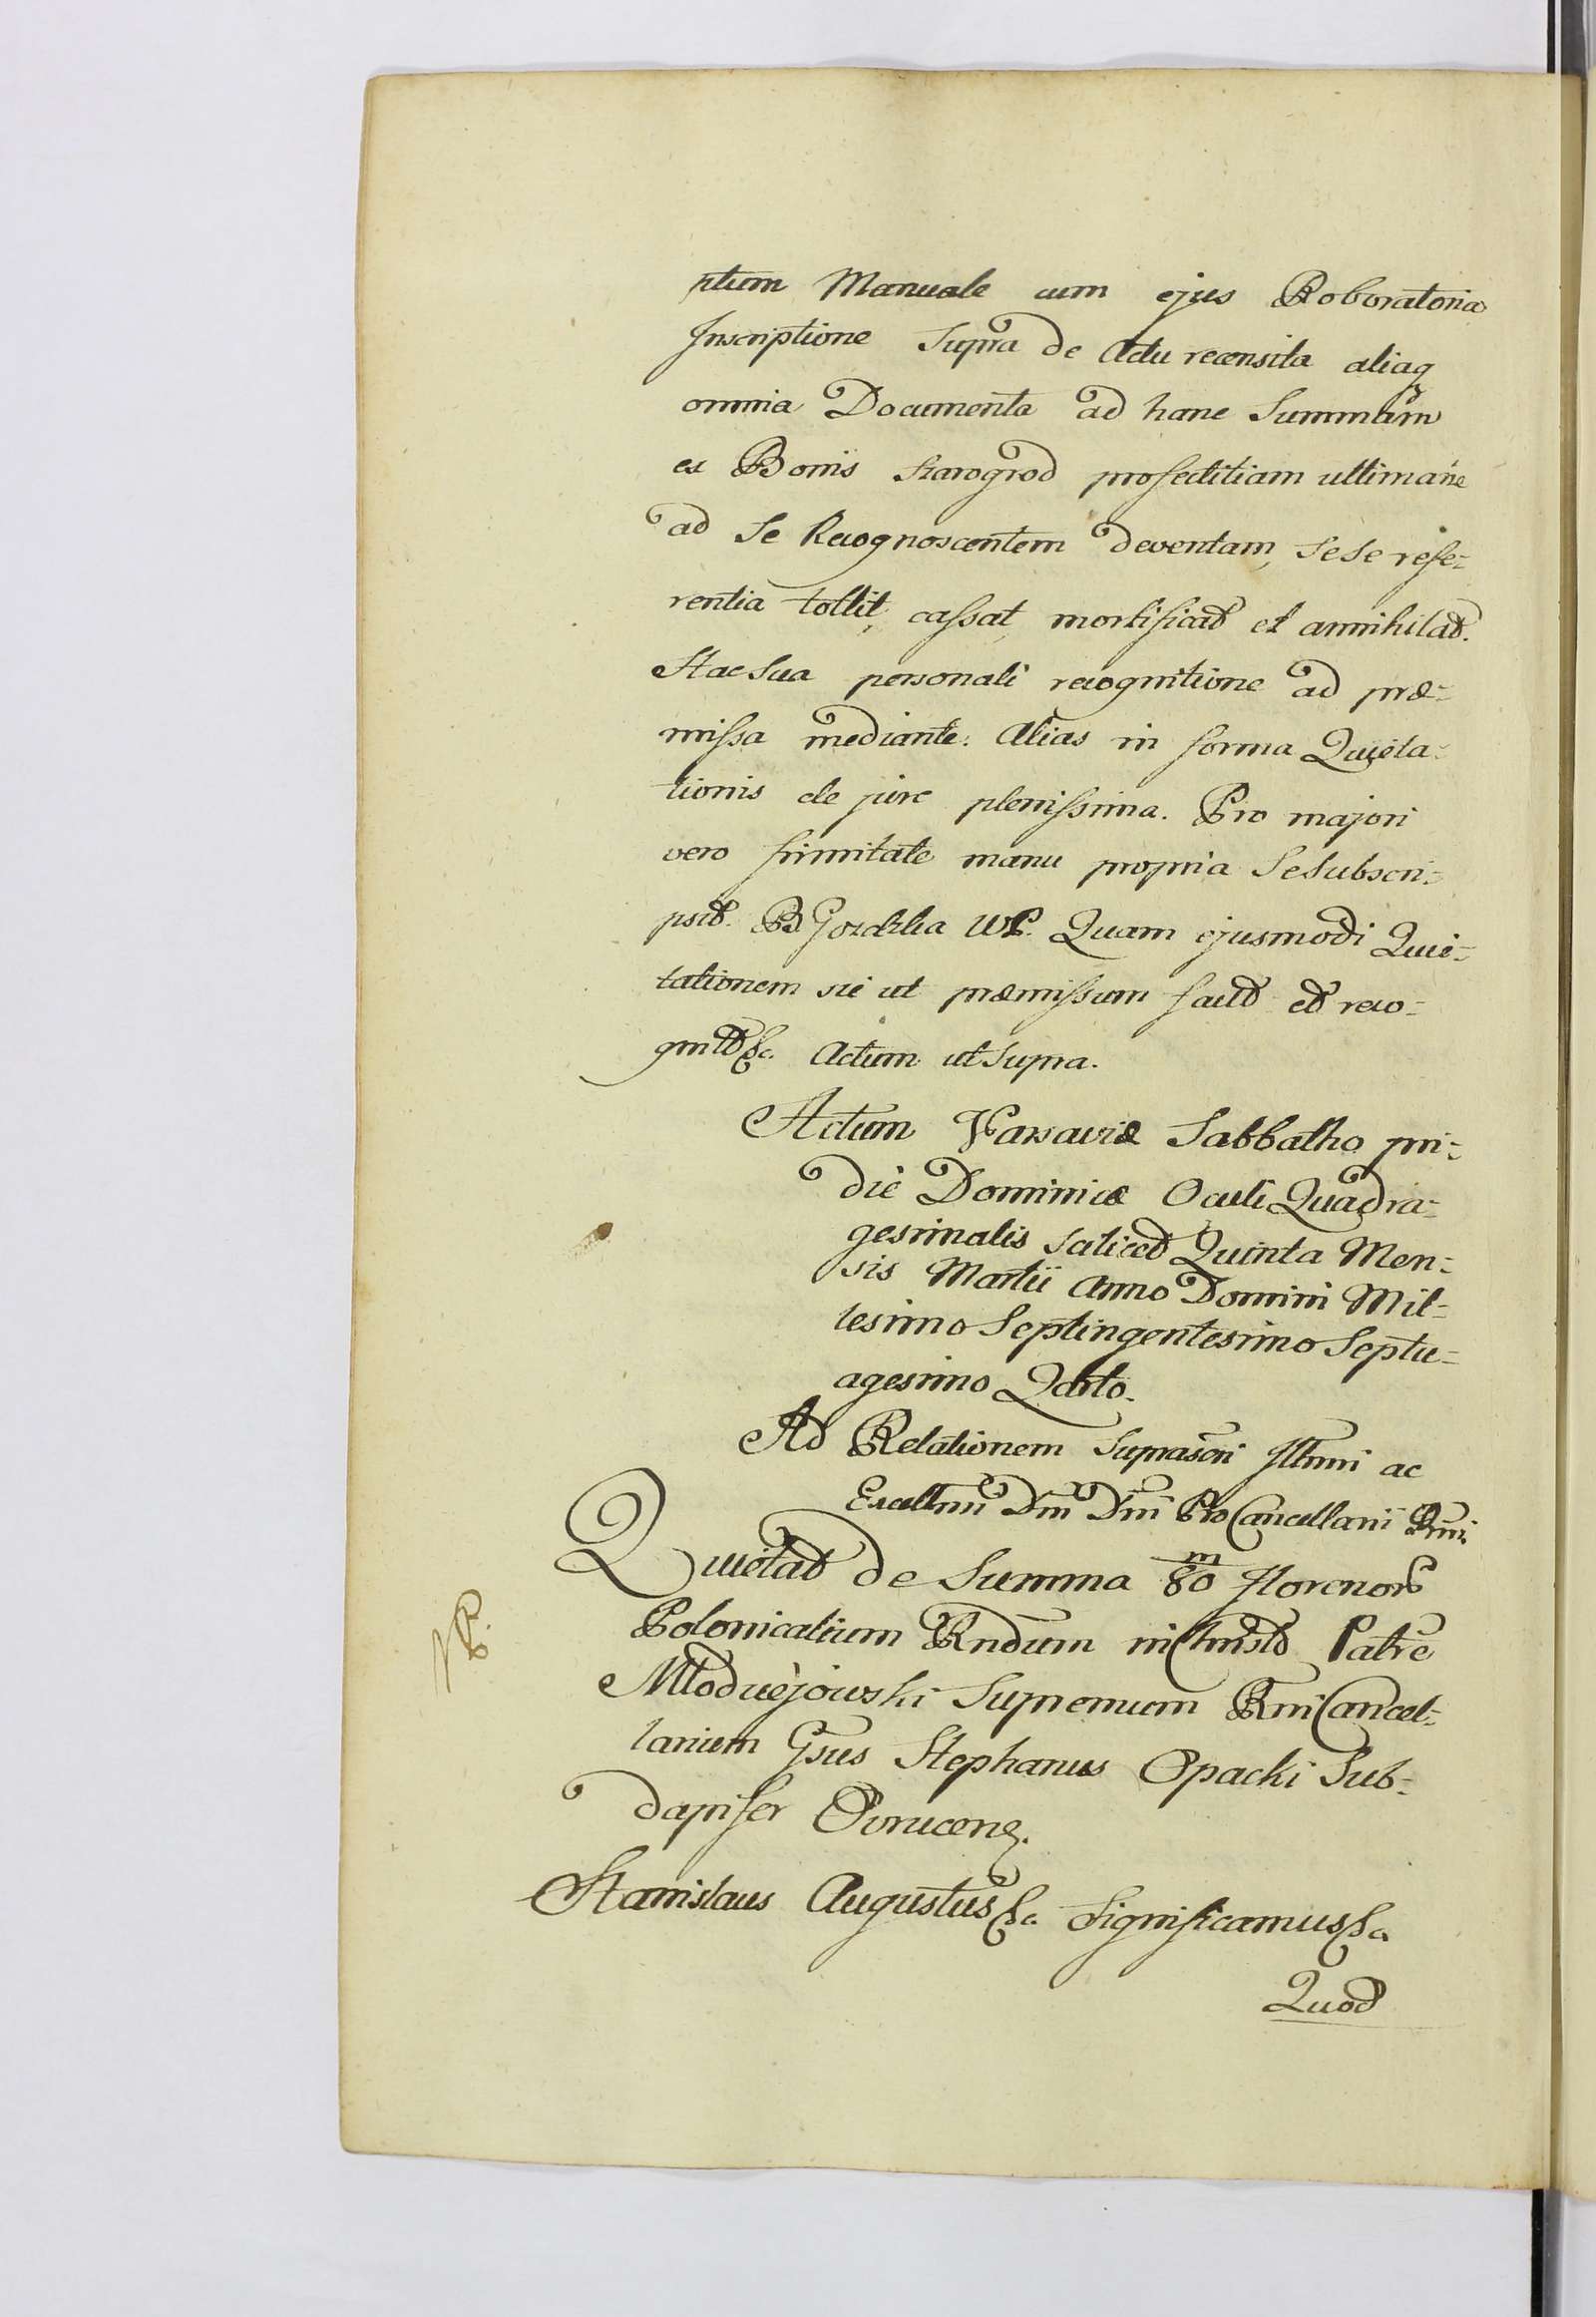 ptum Manuale cum ejus Roboratoria
Inscriptione Supra de Actu recensita aliaq
omnia Documenta ad hanc Summam
ex Bonis Szarogrod profectitiam ultimarie
ad Se Recognoscentem deventam, Sese refe-
rentia tollit, cassat, mortificat et annihilat.
Hac Sua personali recognitione ad præ-
missa mediante. Alias in forma Quieta-
tionis de jure plenissima. Pro majori
vero firmitate manu propria Se Subscri-
psit. B Gozdzka WP. Quam ejusmodi Quie-
tationem sic ut præmissum facit et reco-
gnit &c. Actum ut Supra.
Actum Varsaviæ Sabbatho pri-
die Dominicæ Oculi Quadra-
gesimalis scilicet Quinta Men-
sis Martii Anno Domini Mil-
lesimo Septingentesimo Septu-
agesimo Qarto.
Ad Relationem Suprascri Illmi ac
Excellmi Dni Dni ProCancellarii Rni
Quietat de Summa 80 m Florenor
Polonicalium Rndum in Christo Patre
Młodziejowski Supremum Rni Cancel-
larium Gsus Stephanus Opacki Sub-
dapifer Ovrucens.
Stanislaus Augustus &c. Significamus &c.
Quod